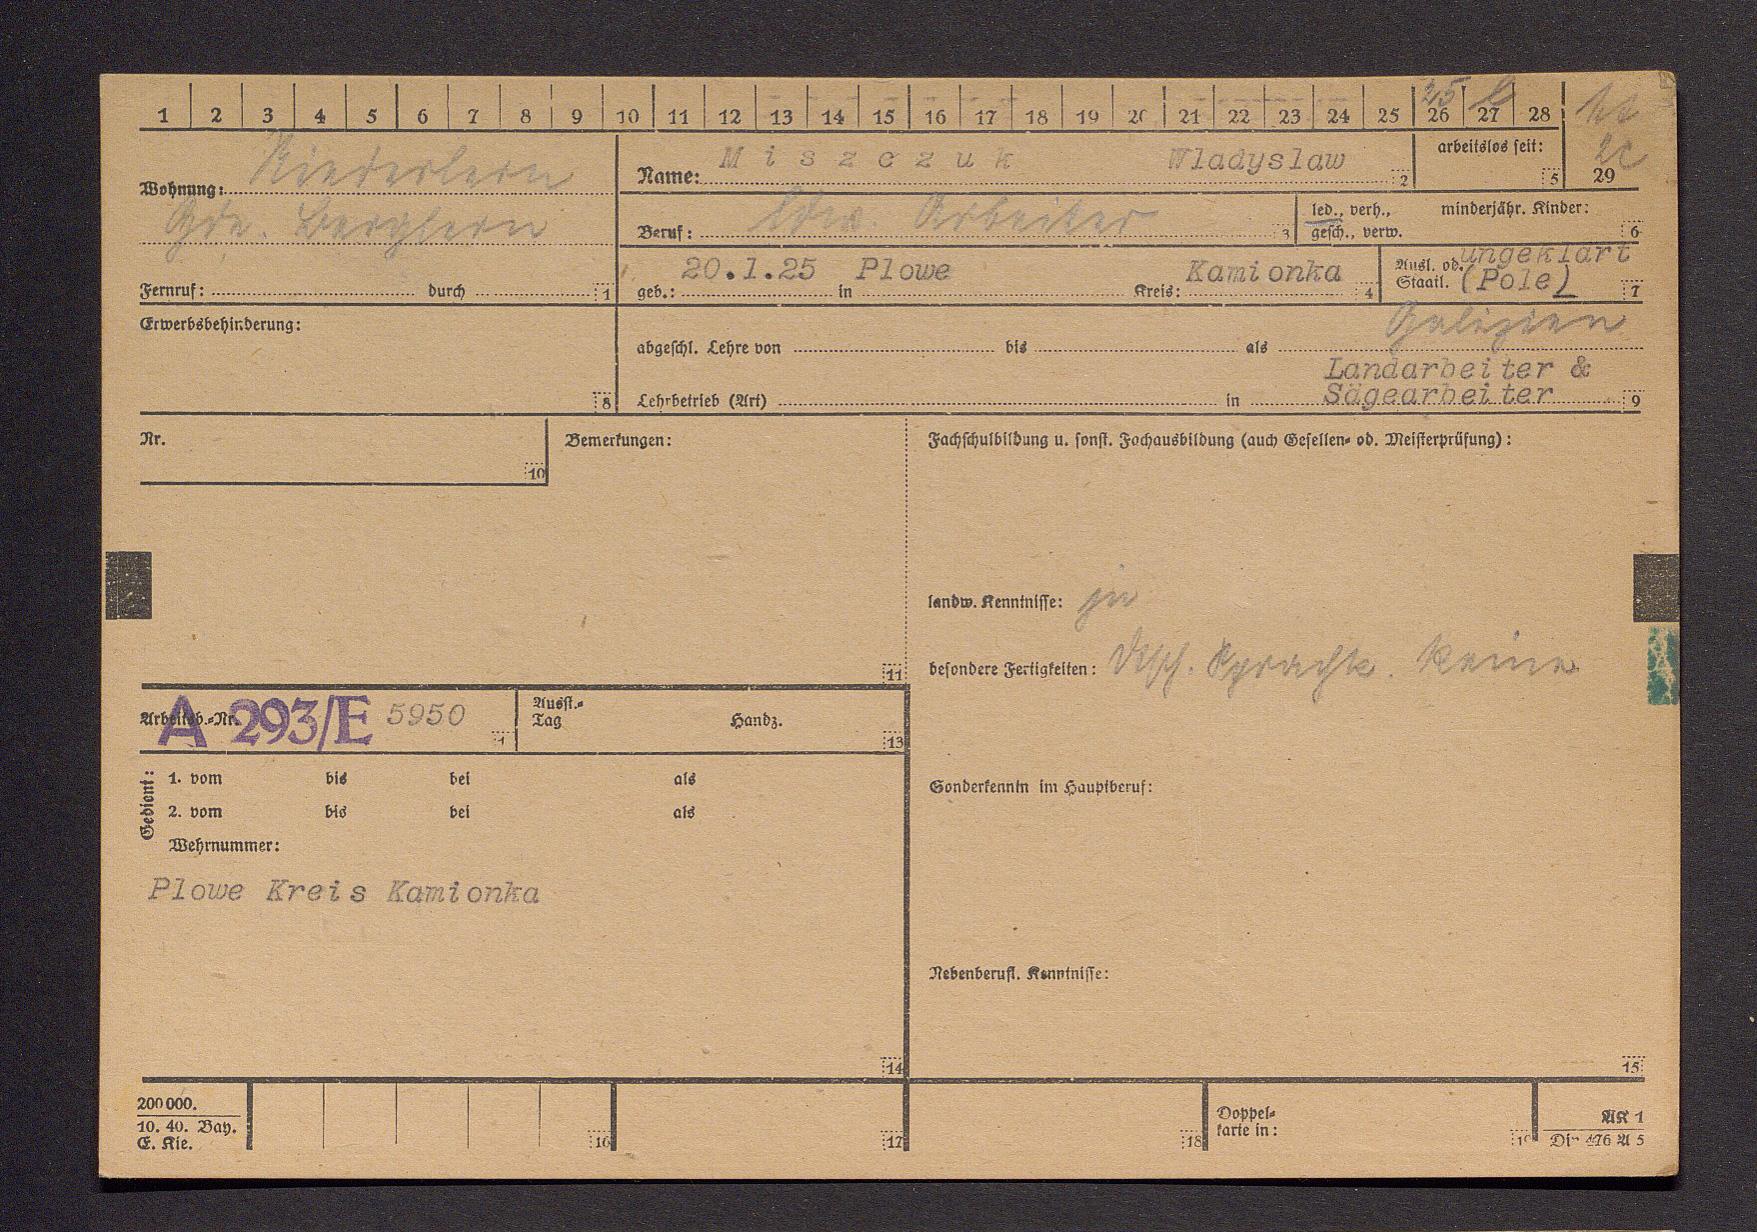 1 2 3 4 5 6 7 8 9 10 11 12 13 14 15 16 17 18 19 20 21 22 23 24 25 26 27 28
25
2c
29
Wohnung: Niederlern
Gde. Berglern
Fernruf: durch 1
Name: Miszczuk Wladyslaw 2
arbeitslos seit: 5
Beruf: ldw. Arbeiter 3
led., verh., minderjähr. Kinder:
gesch., verw. 6
geb.: 20.1.25 in Plowe Kreis: Kamionka 4
Ausl. od. ungeklärt
Staatl. (Pole) 7
Erwerbsbehinderung: 8
Galizien
abgeschl. Lehre von bis als
Landarbeiter &
Lehrbetrieb (Art) in Sägearbeiter 9
Nr. 10
Bemerkungen: 11
Fachschulbildung u. sonst. Fachausbildung (auch Gesellen- od. Meisterprüfung):
landw. Kenntnisse: ja
besondere Fertigkeiten: dtsch. Sprachk. keine
Arbeitsb.-Nr. A 293/E 5950
Ausst.-
Tag Handz. 13
Gedient:
1. vom bis bei als
2. vom bis bei als
Wehrnummer:
Plowe Kreis Kamionka
14
Sonderkenntn im Hauptberuf:
Nebenberufl. Kenntnisse:
15
200 000.
10. 40. Bay.
E. Kie.
16 17 18
Doppel-
karte in: 19
AK 1
Din 476 A 5